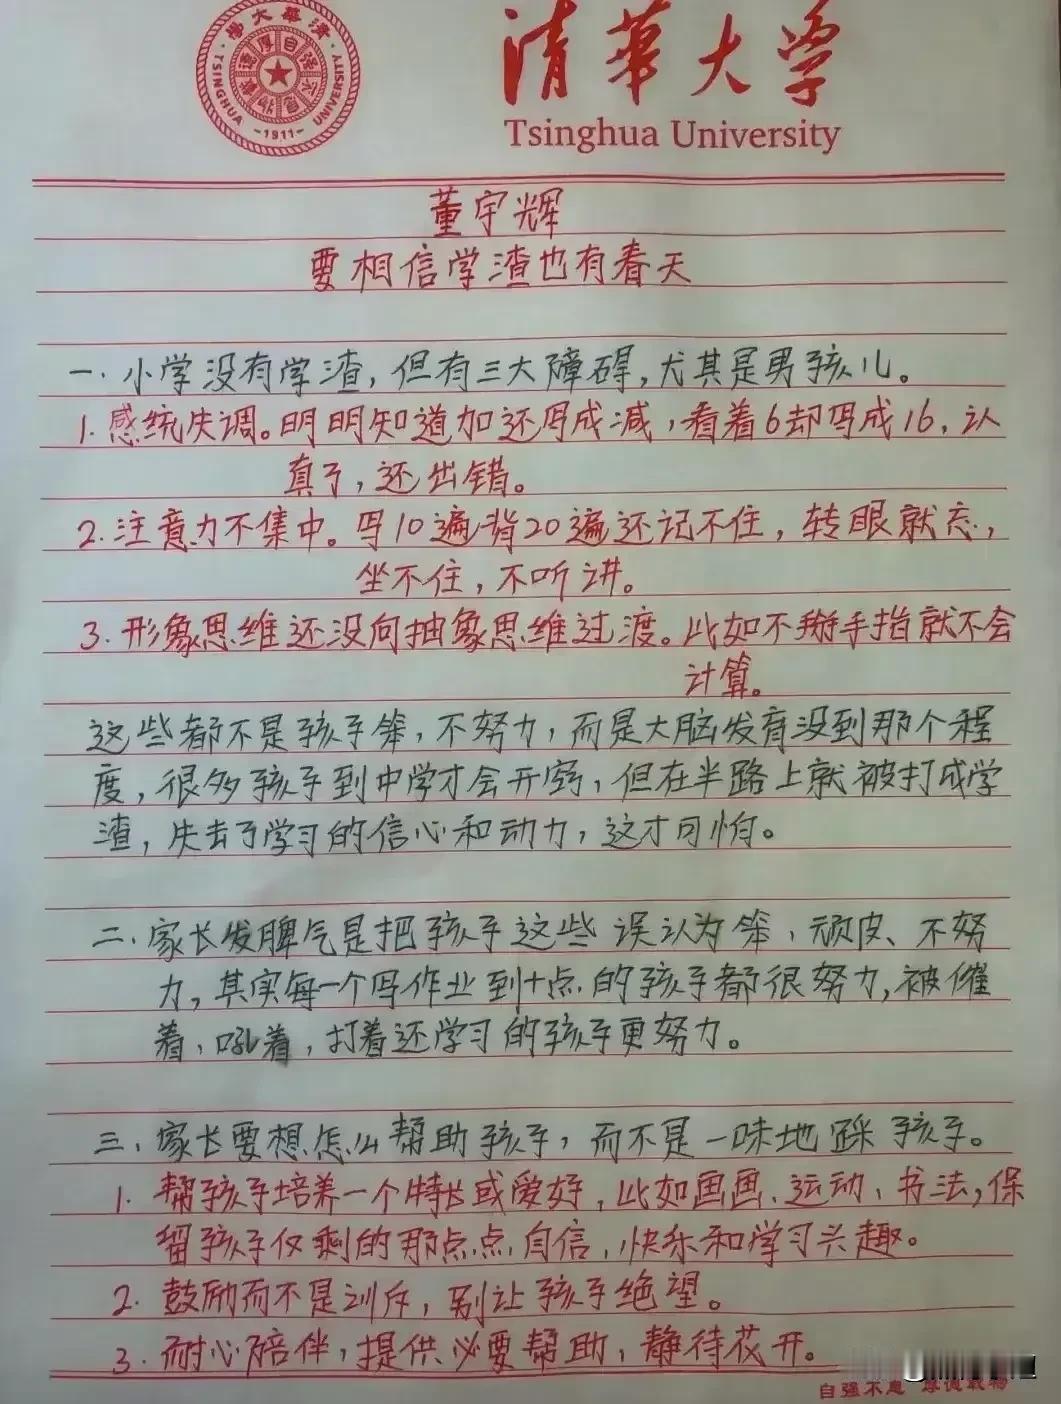 清華大學
TSINGHUA UNIVERSITY
自强不息
厚德載物
-1911-
清華大学
Tsinghua University
董宇辉
要相信学渣也有春天
一.小学没有学渣,但有三大障碍,尤其是男孩儿。
1.感统失调。明明知道加还写成减,看着6却写成16,认
真了,还出错。
2.注意力不集中。写10遍背20遍还记不住,转眼就忘,
坐不住,不听讲。
3.形象思维还没向抽象思维过渡。比如不掰手指就不会
计算。
这些都不是孩子笨,不努力,而是大脑发育没到那个程
度,很多孩子到中学才会开窍,但在半路上就被打成学
渣,失去了学习的信心和动力,这才可怕。
二.家长发脾气是把孩子这些误认为笨、顽皮、不努
力,其实每一个写作业到十点的孩子都很努力,被催
着、吼着,打着还学习的孩子更努力。
三、家长要想怎么帮助孩子,而不是一味地踩孩子。
1.帮孩子培养一个特长或爱好,比如画画、运动、书法,保
留孩子仅剩的那点点自信、快乐和学习兴趣。
2.鼓励而不是训斥,别让孩子绝望。
3.耐心陪伴,提供必要帮助,静待花开。
自强不息 厚德载物